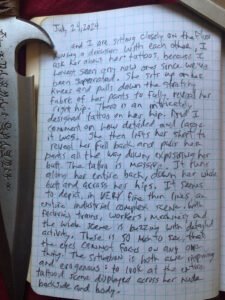 July 24, 2024
and I are sitting closely on the floor
having a discussion with each other, I
ask her about her tattoos, because I
haven't seen any new ones since we've
been separated. She sits up on her
knees and pulls down the stretchy
fabric of her pants to fully reveal her
right hip. There is an intricately
designed tattoo on her hip. And I
comment on how detailed and large
it was. She then lifts her shirt to
reveal her full back and pulls her
pants all the way down, exposing her
butt. The tattoo is massive. It runs
along her entire back, down her whole
butt and across her hips. It seems
to depict, in VERY fine thin lines an
entire industrial complex scene, with
factories, trains, workers, machinery and
the whole scene is buzzing with detailed
activity. There is so much to see that
the eyes cannot focus on any one
thing. The situation is both awe inspiring
and erogenous: to look at the entire
tattooed scene displayed across her nude
backside and body.